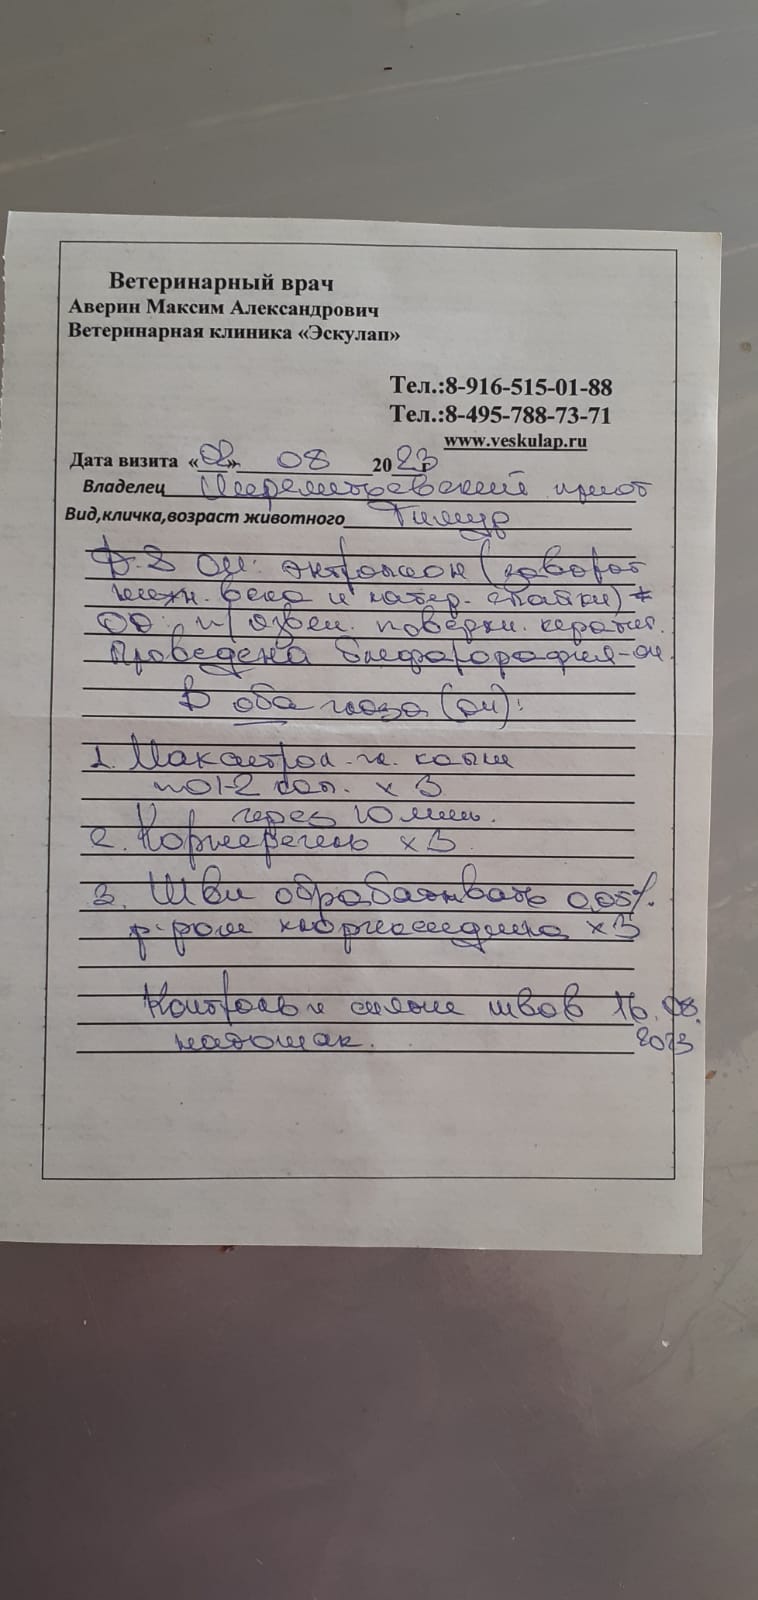 Ветеринарный врач
Аверин Максим Александрович
Ветеринарная клиника «Эскулап»
Тел.:8-916-515-01-88
Тел.:8-495-788-73-71
www.veskulap.ru
Дата визита «02» 08 2023 г
Владелец Шереметьевский приют
Вид,кличка,возраст животного Тимур
Д-З ОИ: энтропион (заворот
нижн. века и латер. спайки) *
OD: п/язвен. поверхн. кератит.
Проведена блефарорафия-ои.
В оба глаза (ои):
1. Макситрол-гл. капли
по 1-2 кап. х 3
через 10 мин.
2. Корнерегель х 3
3. Швы обрабатывать 0,05%
р-ром хлоргексидина х 3
Контроль и снятие швов 16.08.
2023
натощак.